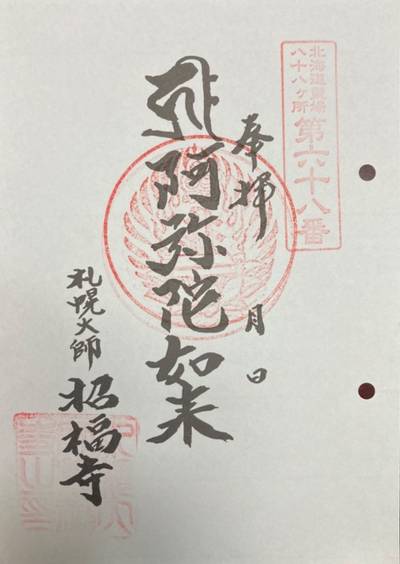 北海道霊場
八十八ヶ所
第六十八番
奉拝 月 日
阿弥陀如来
札幌大師 招福寺